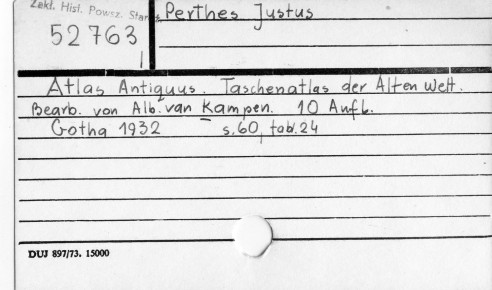 Zakł. Hist. Powsz. Star
Perthes Justus
52763
Atlas Antiquus. Taschenatlas der Alten Welt.
Bearb. von Alb. van Kampen. 10 Aufl.
Gotha 1932 s. 60, tab. 24
DUJ 897/73. 15000